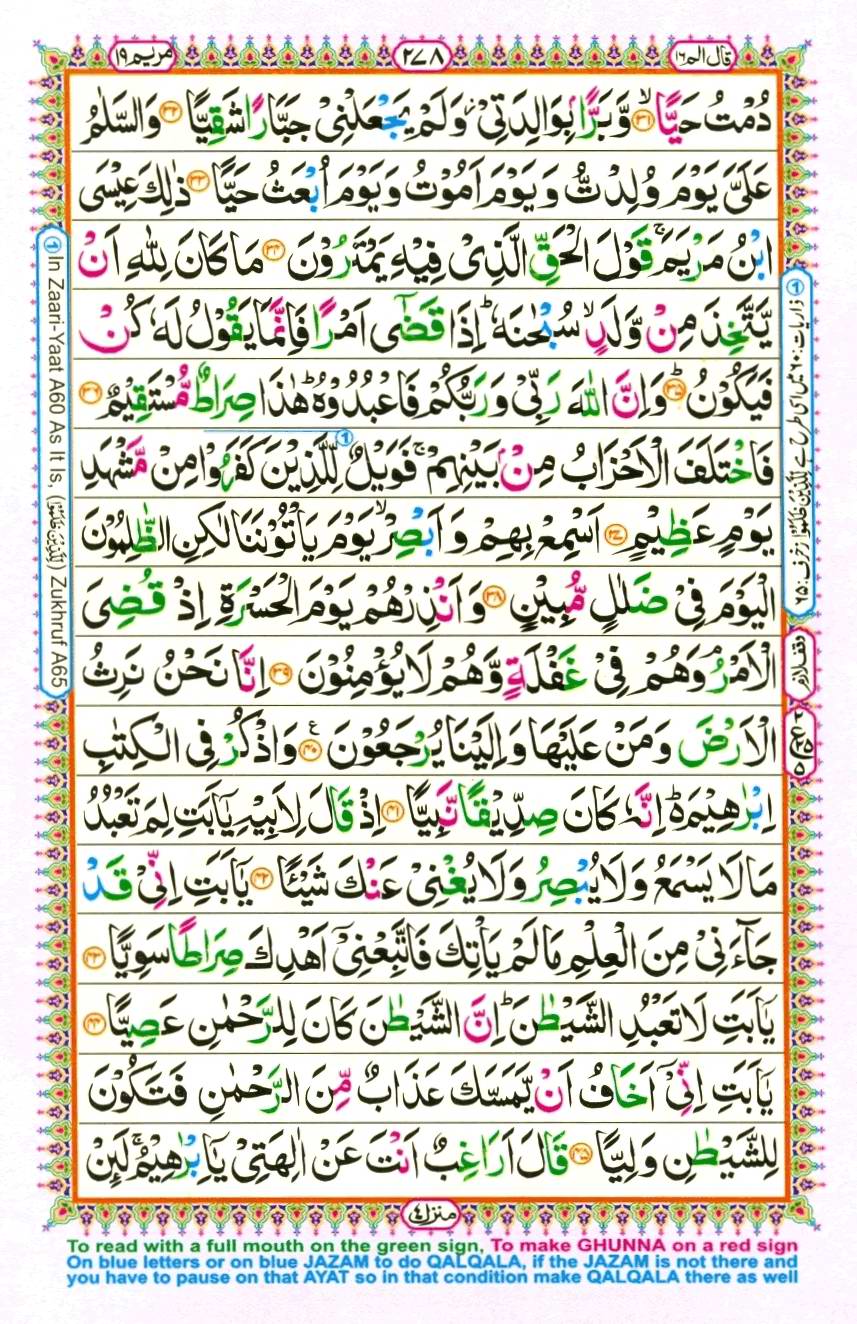 قال الم ١٦
٢٧٨
مريم ١٩
دُمْتُ حَيًّا ۙ‏ ﴿۳۱﴾ وَّبَرًّۢا بِوَالِدَتِیْ ؗ وَلَمْ یَجْعَلْنِیْ جَبَّارًا شَقِیًّا ﴿۳۲﴾ وَالسَّلٰمُ
عَلَیَّ یَوْمَ وُلِدْتُّ وَیَوْمَ اَمُوْتُ وَیَوْمَ اُبْعَثُ حَیًّا ﴿۳۳﴾ ذٰلِكَ عِیْسَی
ابْنُ مَرْیَمَ ۚ قَوْلَ الْحَقِّ الَّذِیْ فِیْهِ یَمْتَرُوْنَ ﴿۳۴﴾ مَا كَانَ لِلّٰهِ اَنْ
یَّتَّخِذَ مِنْ وَّلَدٍ ۙ سُبْحٰنَهٗ ؕ اِذَا قَضٰۤی اَمْرًا فَاِنَّمَا یَقُوْلُ لَهٗ كُنْ
فَیَكُوْنُ ؕ﴿۳۵﴾ وَاِنَّ اللّٰهَ رَبِّیْ وَرَبُّكُمْ فَاعْبُدُوْهُ ؕ هٰذَا صِرَاطٌ مُّسْتَقِیْمٌ ﴿۳۶﴾
فَاخْتَلَفَ الْاَحْزَابُ مِنْۢ بَیْنِهِمْ ۚ فَوَیْلٌ لِّلَّذِیْنَ كَفَرُوْا مِنْ مَّشْهَدِ
یَوْمٍ عَظِیْمٍ ﴿۳۷﴾ اَسْمِعْ بِهِمْ وَاَبْصِرْ ۙ یَوْمَ یَاْتُوْنَنَا لٰكِنِ الظّٰلِمُوْنَ
الْیَوْمَ فِیْ ضَلٰلٍ مُّبِیْنٍ ﴿۳۸﴾ وَاَنْذِرْهُمْ یَوْمَ الْحَسْرَةِ اِذْ قُضِیَ
الْاَمْرُ ۘ وَهُمْ فِیْ غَفْلَةٍ وَّهُمْ لَا یُؤْمِنُوْنَ ﴿۳۹﴾ اِنَّا نَحْنُ نَرِثُ
الْاَرْضَ وَمَنْ عَلَیْهَا وَاِلَیْنَا یُرْجَعُوْنَ ﴿۴۰﴾ وَاذْكُرْ فِی الْكِتٰبِ
اِبْرٰهِیْمَ ؕ اِنَّهٗ كَانَ صِدِّیْقًا نَّبِیًّا ﴿۴۱﴾ اِذْ قَالَ لِاَبِیْهِ یٰۤاَبَتِ لِمَ تَعْبُدُ
مَا لَا یَسْمَعُ وَلَا یُبْصِرُ وَلَا یُغْنِیْ عَنْكَ شَیْئًا ﴿۴۲﴾ یٰۤاَبَتِ اِنِّیْ قَدْ
جَآءَنِیْ مِنَ الْعِلْمِ مَا لَمْ یَاْتِكَ فَاتَّبِعْنِیْۤ اَهْدِكَ صِرَاطًا سَوِیًّا ﴿۴۳﴾
یٰۤاَبَتِ لَا تَعْبُدِ الشَّیْطٰنَ ؕ اِنَّ الشَّیْطٰنَ كَانَ لِلرَّحْمٰنِ عَصِیًّا ﴿۴۴﴾
یٰۤاَبَتِ اِنِّیْۤ اَخَافُ اَنْ یَّمَسَّكَ عَذَابٌ مِّنَ الرَّحْمٰنِ فَتَكُوْنَ
لِلشَّیْطٰنِ وَلِیًّا ﴿۴۵﴾ قَالَ اَرَاغِبٌ اَنْتَ عَنْ اٰلِهَتِیْ یٰۤاِبْرٰهِیْمُ ۚ لَئِنْ
وقف لازم
In Zaari-Yaat A60 As It Is, (لِلَّذِیْنَ ظَلَمُوْا) Zukhruf A65
منزل ٤
To read with a full mouth on the green sign, To make GHUNNA on a red sign
On blue letters or on blue JAZAM to do QALQALA, if the JAZAM is not there and
you have to pause on that AYAT so in that condition make QALQALA there as well